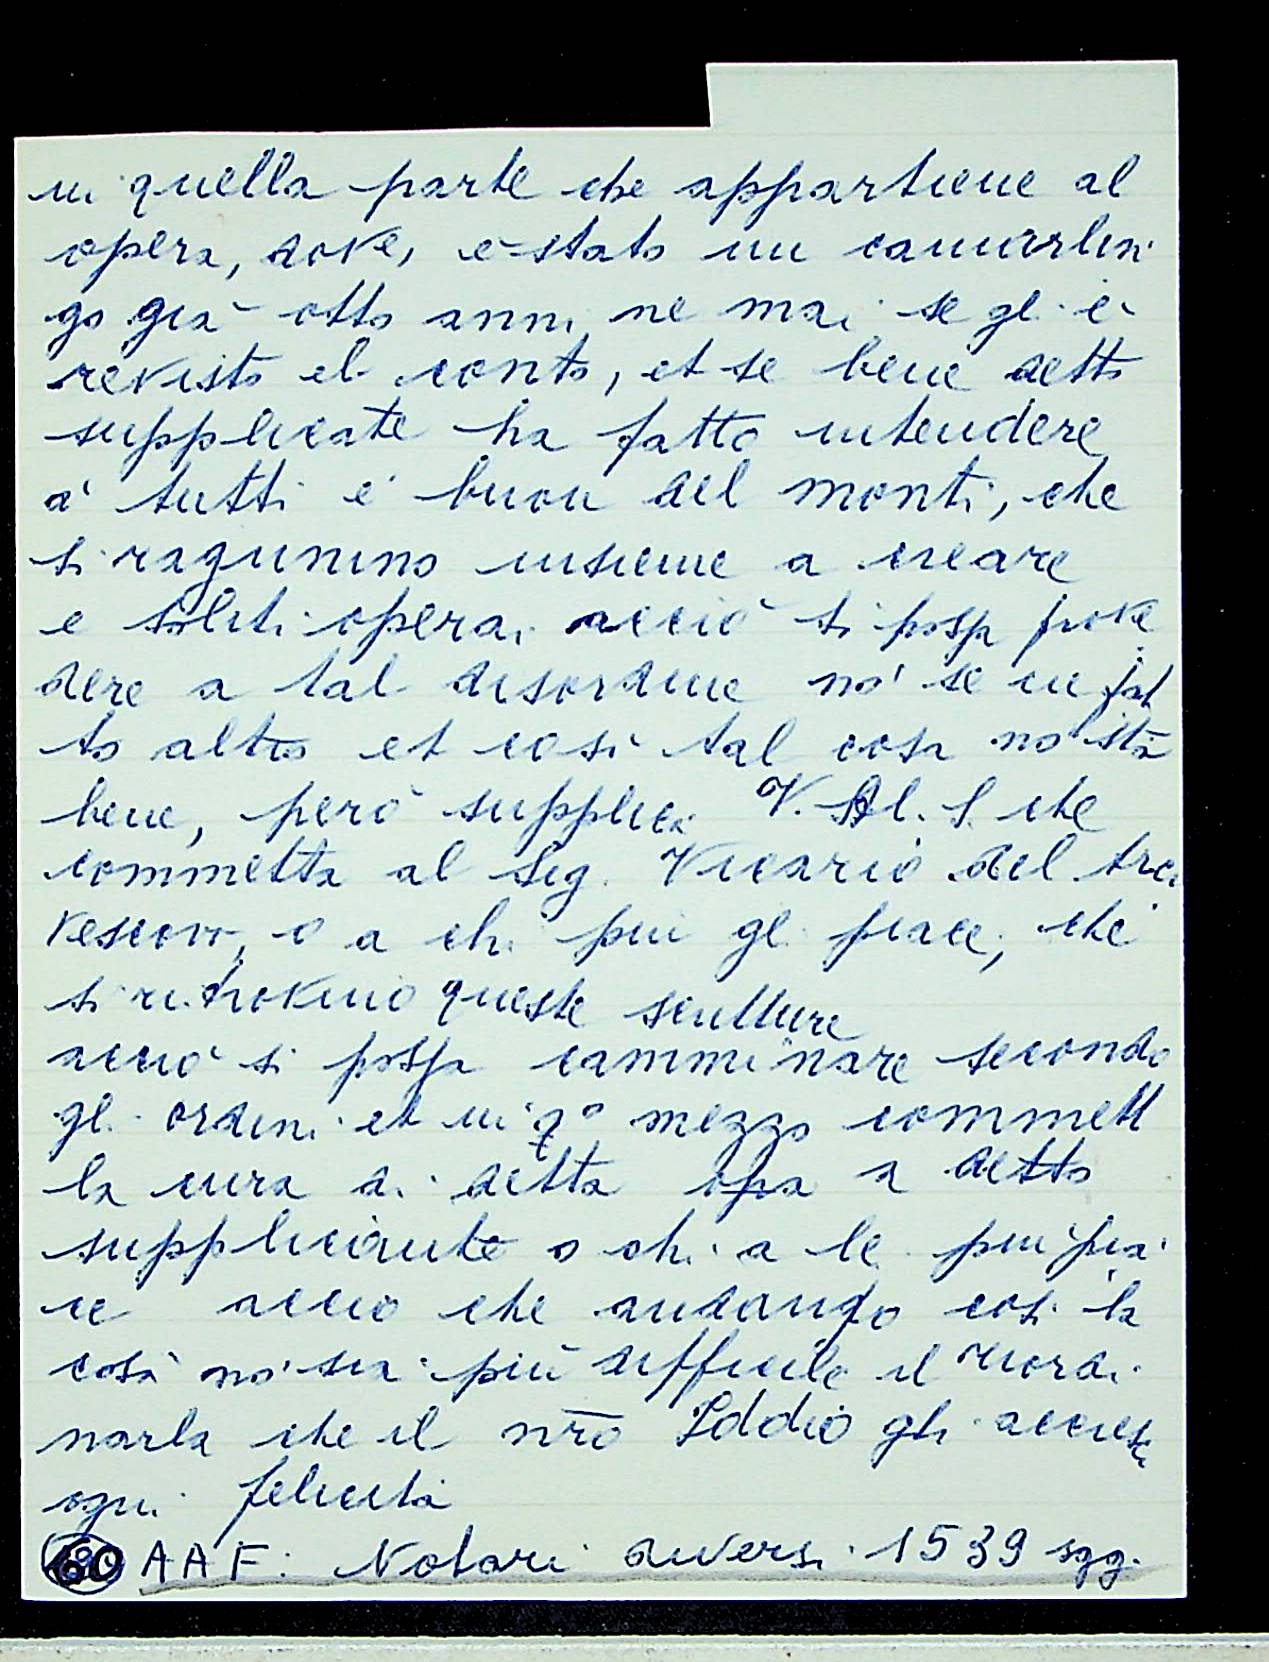 in quella parte che appartiene al
opera, dove, è stato un camarlin
go già otto anni, ne mai se gl' è
revisto el conto, et se bene detto
supplicate ha fatto intendere
a' tutti e' buon del monti, che
si ragunino insieme a creare
e soliti operai acciò si possa prove
dere a tal disordine no' se in fat
to altro et così tal cosa no' stà
bene, però supplica V. Al. S. che
commetta al Sig. Vicario del Arci
vescovo, o a chi piu gl' piace, che
si ritrovino queste scritture
acciò si possa camminare secondo
gl' ordini et in q° mezzo commett
la cura di detta opa a detto
supplicante o chi a le piu pia
ce acciò che andando così la
cosa no' sia più difficile il riordi
narla che il nro Iddio gli accresc
ogni felicità
60 AAF. Notari diversi 1539 sgg.